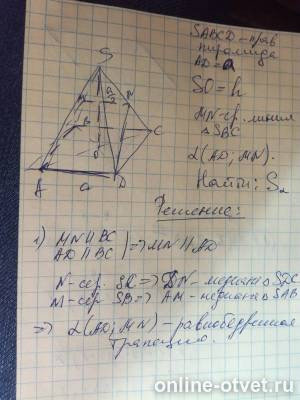 SABCD – прав
пирамида
AD = a
SO = h
MN – ср. линия
△SBC
α(AD; MN).
Найти: Sα
Решение:
S
M
N
B
C
O
A
a
D
1) MN || BC
AD || BC
⇒ MN || AD
N – сер. SC ⇒ DN – медиана SDC
M – сер SB ⇒ AM – медиана SAB
⇒ α(AD; MN) – равнобедренная
трапеция.
online-otvet.ru